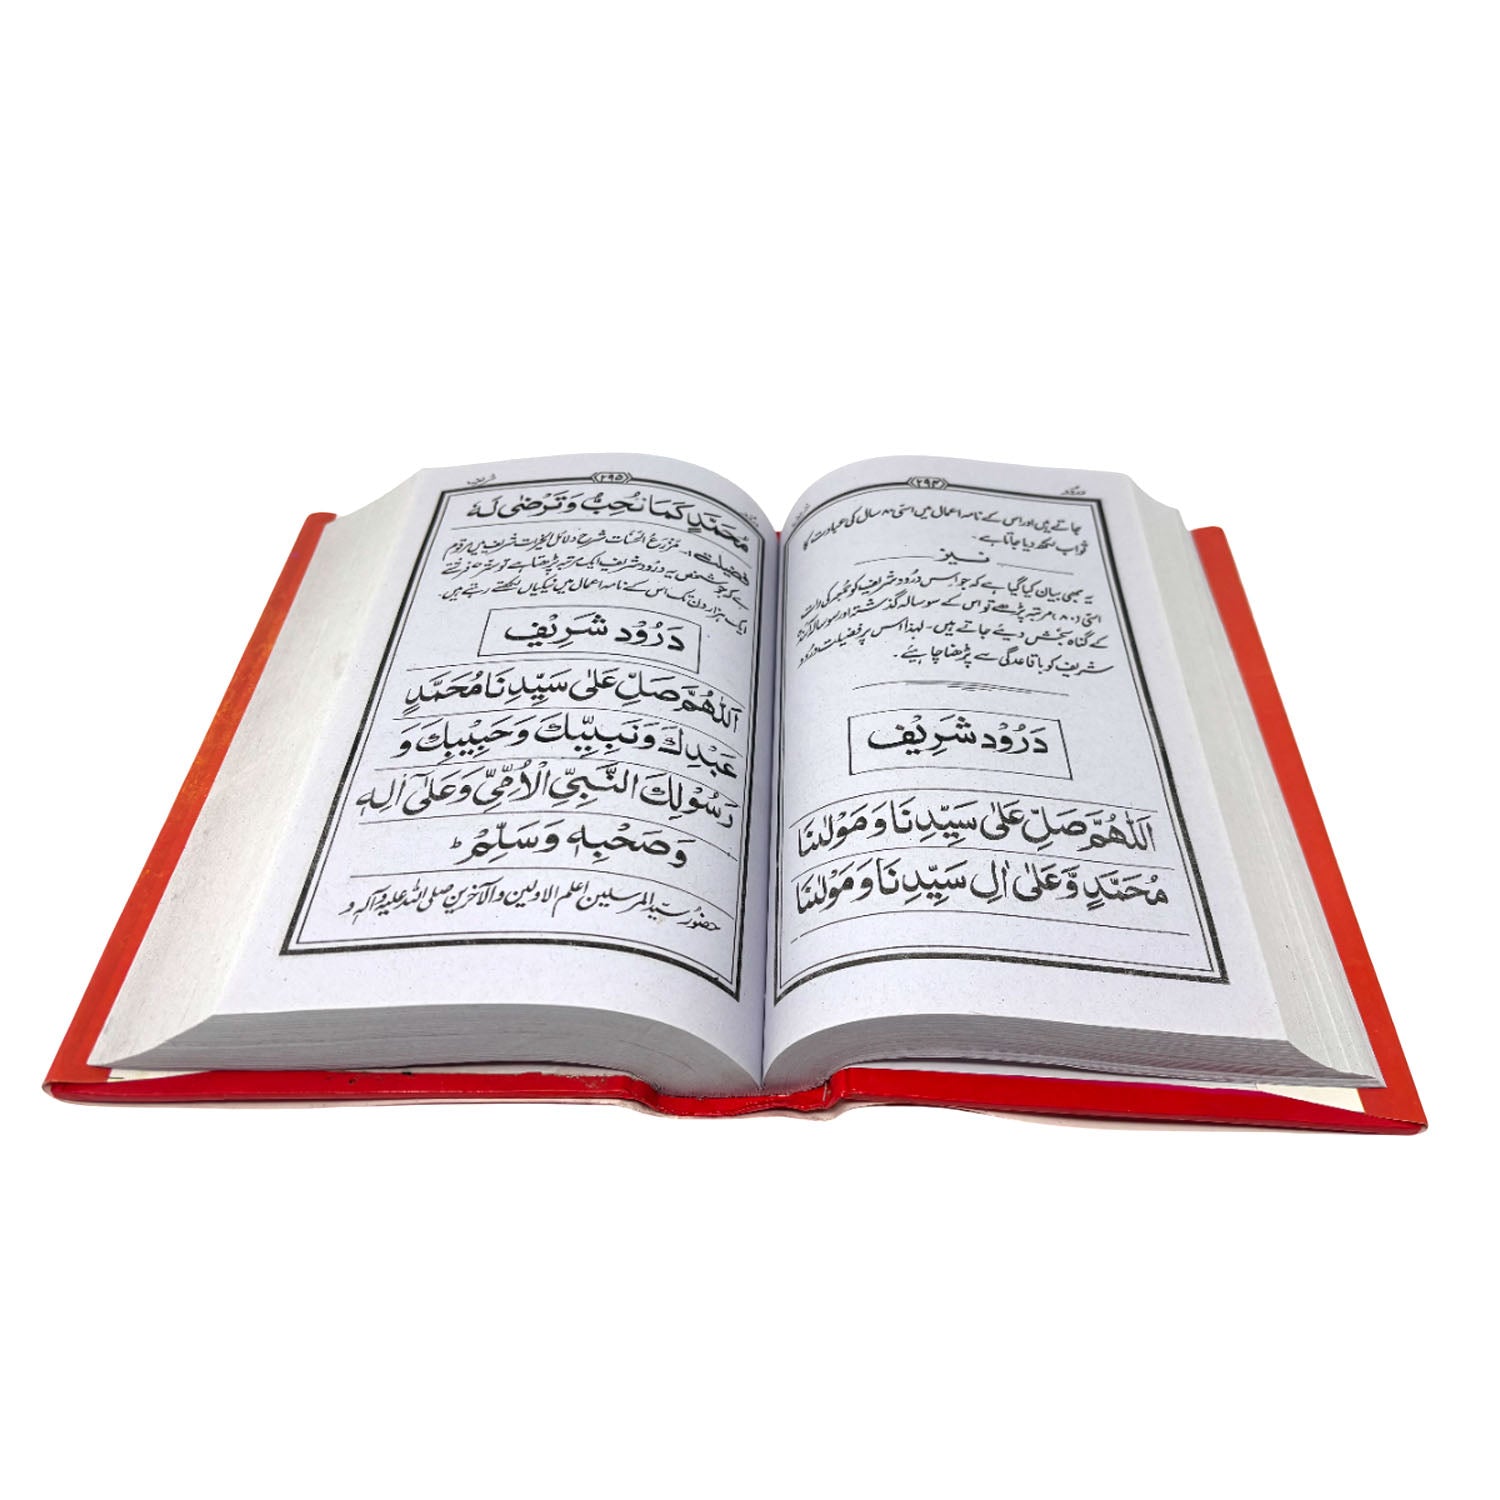 درود
﴿۲۹۴﴾
جاتے ہیں اور اس کے نامہ اعمال میں اسّی ۸۰ سال کی عبادت کا
ثواب لکھ دیا جاتا ہے۔
نیز
یہ بھی بیان کیا گیا ہے کہ جو اس درُود شریف کو جمعہ کی رات
اسّی (۸۰) مرتبہ پڑھے تو اس کے سو سالہ گذشتہ اور سو سالہ آئندہ
کے گناہ بخش دیئے جاتے ہیں۔ لہٰذا اس پر فضیلت درُود
شریف کو باقاعدگی سے پڑھنا چاہیئے۔
دَرُوْد شَرِیْف
اَللّٰهُمَّ صَلِّ عَلٰى سَيِّدِنَا وَ مَوْلٰىنَا
مُحَمَّدٍ وَّ عَلٰى اٰلِ سَيِّدِنَا وَ مَوْلٰىنَا
﴿۲۹۵﴾
شریف
مُحَمَّدٍ كَمَا تُحِبُّ وَ تَرْضٰى لَهٗ
فضیلت :۔ مزرع الحسنات شرح دلائل الخیرات شریف میں مرقوم
ہے کہ جو شخص یہ درُود شریف ایک مرتبہ پڑھتا ہے تو ستّر فرشتے
ایک ہزار دن تک اس کے نامہ اعمال میں نیکیاں لکھتے رہتے ہیں۔
دَرُوْد شَرِیْف
اَللّٰهُمَّ صَلِّ عَلٰى سَيِّدِنَا مُحَمَّدٍ
عَبْدِكَ وَ نَبِيِّكَ وَ حَبِيْبِكَ وَ
رَسُوْلِكَ النَّبِيِّ الْاُمِّيِّ وَ عَلٰٓى اٰلِهٖ
وَ صَحْبِهٖ وَ سَلِّمْ ؕ
حضور سیّد المرسلین اعلم الاولین والآخرین صلی اللہ علیہ وآلہ و